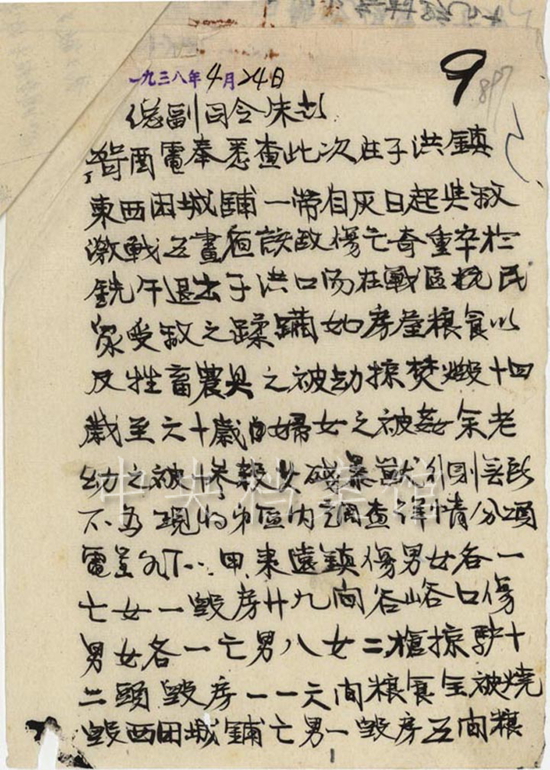 一九三八年4月24日
9
總副司令朱彭
酉電奉悉查此次在子洪鎮
東西团城鋪一帶自灰日起與敌
激戰五晝夜該敌傷亡奇重卒於
銑午退出子洪口 在戰區抗民
衆受敌之蹂躪如房屋粮食以
及牲畜農具之被劫掠焚燬十四
歲至六十歲的婦女之被姦余老
幼之被惨殺其殘暴獸行則無所
不為現將 區内調查詳情分項
電呈如下:甲東遠鎮傷男女各一
亡女一毀房廿九间谷峪口傷
男女各一亡男八女二槍掠驴十
二頭毀房一一六间粮食全被燒
毀西团城鋪亡男一毀房五间粮
中央档案馆